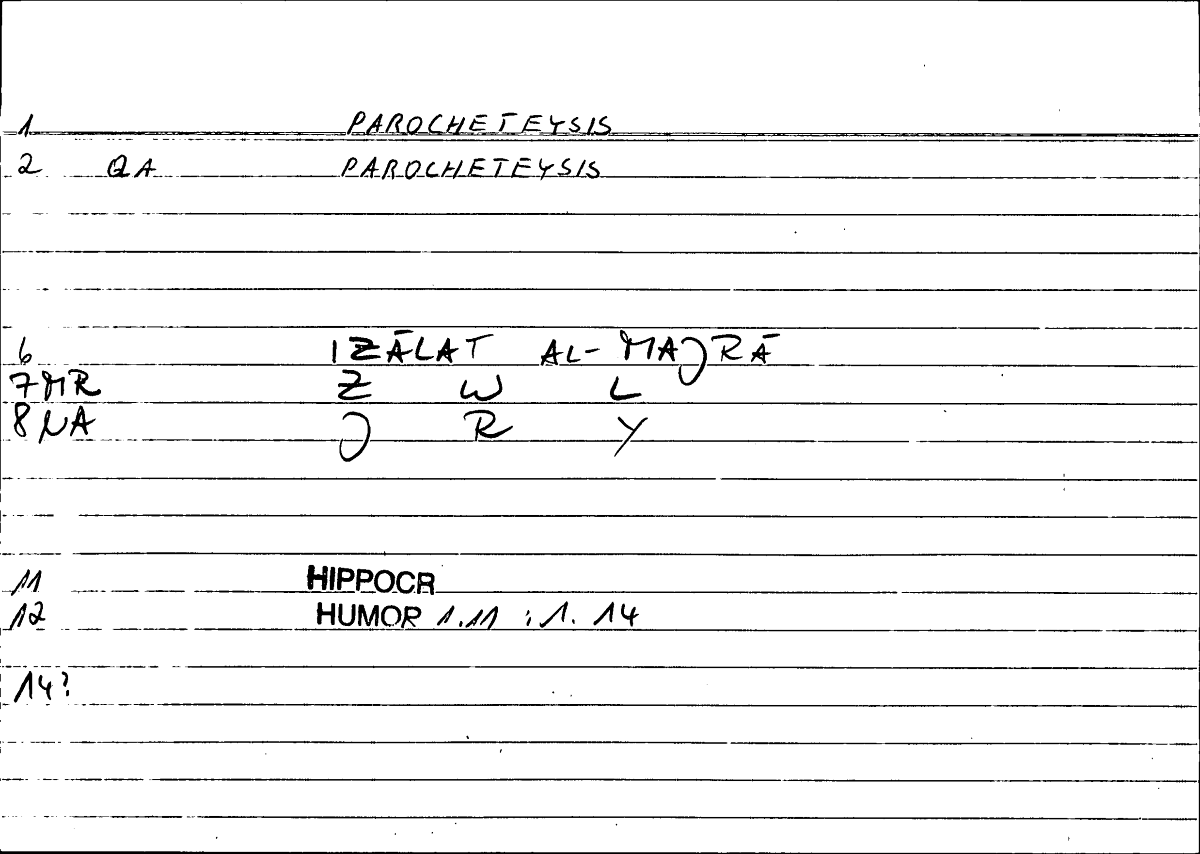 1 PAROCHETEYSIS
2 QA PAROCHETEYSIS
6 IZĀLAT AL-MAJRĀ
7 MR Z W L
8 NA J R Y
11 HIPPOCR
12 HUMOR 1.11 ; 1. 14
14?